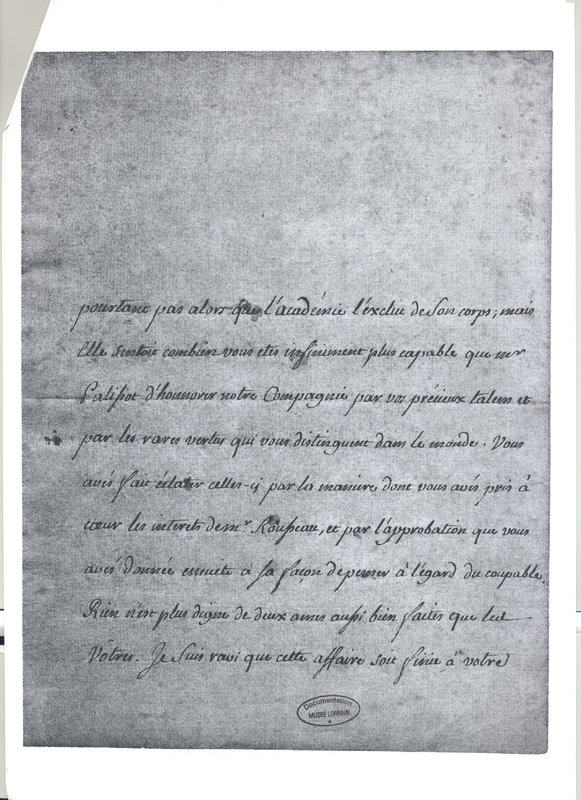 pourtant pas alors que l'académie l'exclut de son corps; mais
Elle sentoit combien vous etes infiniment plus capable que mr
Palissot d'honnorer notre Compagnie par vos précieux talens et
par les rares vertus qui vous distinguent dans le monde. Vous
avés fait éclater celles-ci par la maniere dont vous avés pris à
cœur les interets de mr. Rousseau, et par l'approbation que vous
avés donnée ensuite à sa façon de penser à l'égard du coupable.
Rien n'est plus digne de deux ames aussi bien faites que les
Vôtres. Je suis ravi que cette affaire soit finie à votre
Documentation
MUSÉE LORRAIN